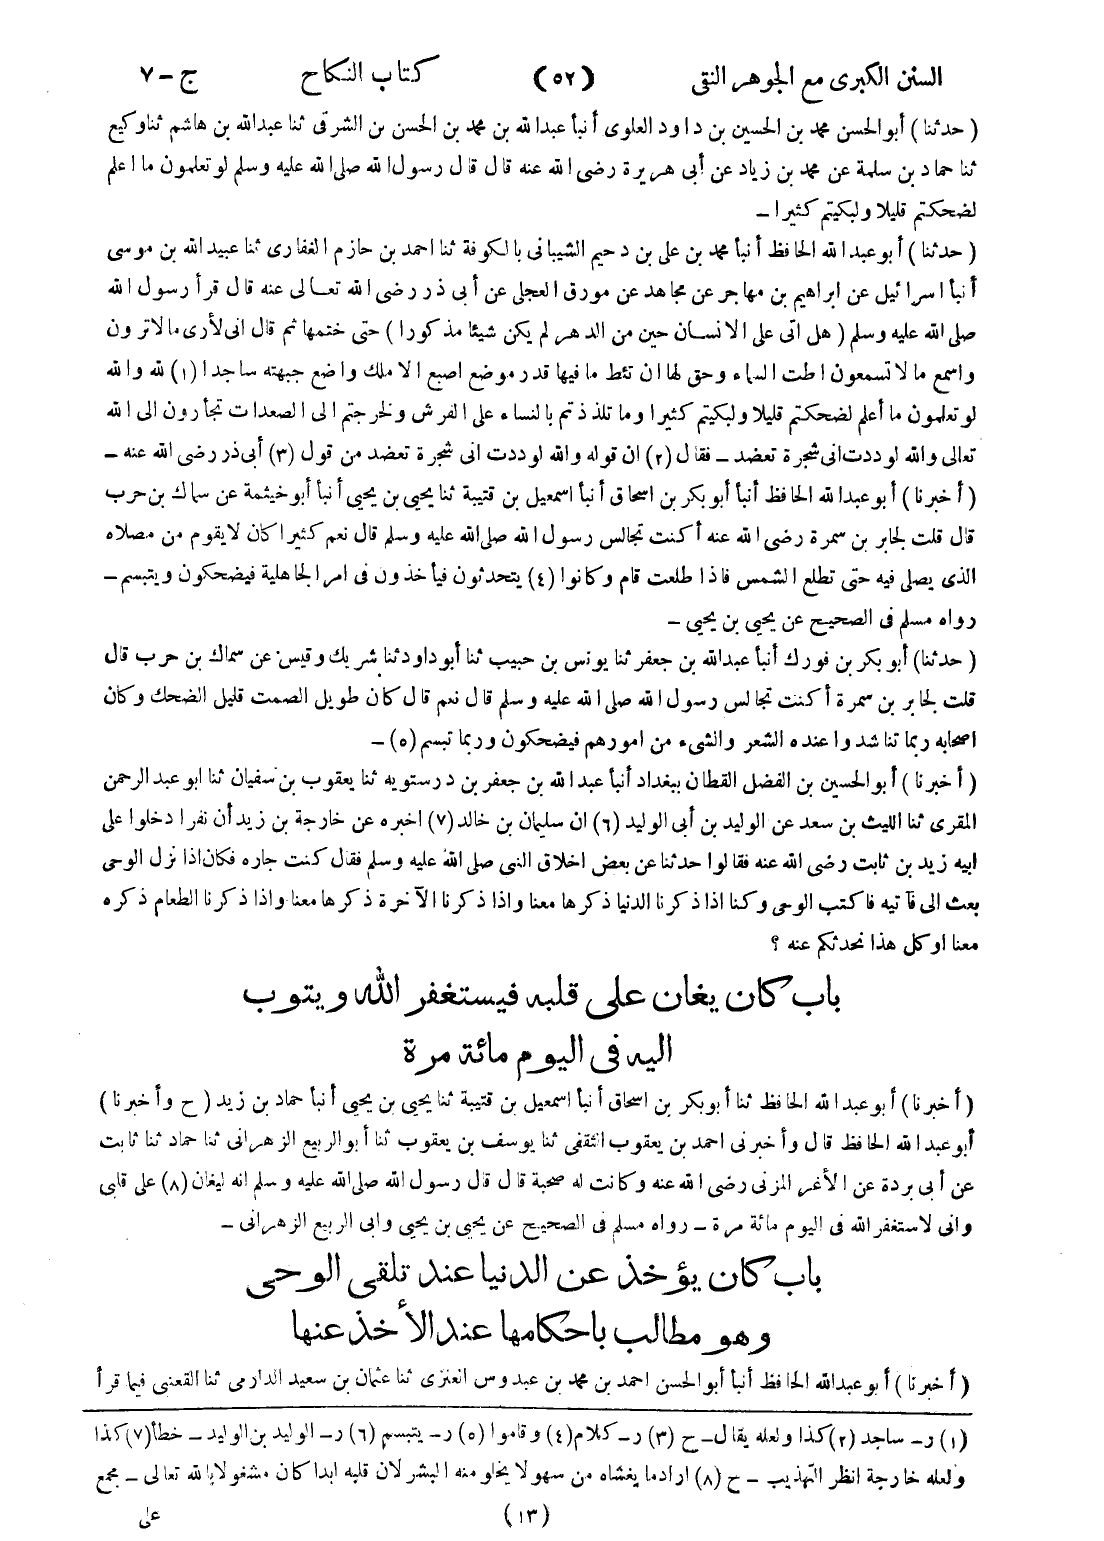 السنن الكبرى مع الجوهر النقى (٥٢) كتاب النكاح ج - ٧
( حدثنا ) أبو الحسن محمد بن الحسين بن داود العلوى أنبأ عبد الله بن محمد بن الحسن بن الشرقى ثنا عبد الله بن هاشم ثنا وكيع
ثنا حماد بن سلمة عن محمد بن زياد عن أبى هريرة رضى الله عنه قال قال رسول الله صلى الله عليه وسلم لو تعلمون ما اعلم
لضحكتم قليلا ولبكيتم كثيرا ــ
( حدثنا ) أبو عبد الله الحافظ أنبأ محمد بن على بن دحيم الشيبانى بالكوفة ثنا احمد بن حازم الغفارى ثنا عبيد الله بن موسى
أنبأ اسرائيل عن ابراهيم بن مهاجر عن مجاهد عن مورق العجلى عن أبى ذر رضى الله تعالى عنه قال قرأ رسول الله
صلى الله عليه وسلم ( هل اتى على الانسان حين من الدهر لم يكن شيئا مذكورا ) حتى ختمها ثم قال انى لأرى ما لا ترون
واسمع ما لا تسمعون اطت السماء وحق لها ان تئط ما فيها قدر موضع اصبع الا ملك واضع جبهته ساجدا (١) لله والله
لو تعلمون ما أعلم لضحكتم قليلا ولبكيتم كثيرا وما تلذذتم بالنساء على الفرش ولخرجتم الى الصعدات تجأرون الى الله
تعالى والله لوددت انى شجرة تعضد ــ فقال (٢) ان قوله والله لوددت انى شجرة تعضد من قول (٣) أبى ذر رضى الله عنه ــ
( أخبرنا ) أبو عبد الله الحافظ أنبأ أبو بكر بن اسحاق أنبأ اسمعيل بن قتيبة ثنا يحيى بن يحيى أنبأ أبو خيثمة عن سماك بن حرب
قال قلت لجابر بن سمرة رضى الله عنه أكنت تجالس رسول الله صلى الله عليه وسلم قال نعم كثيرا كان لا يقوم من مصلاه
الذى يصلى فيه حتى تطلع الشمس فاذا طلعت قام وكانوا (٤) يتحدثون فيأخذون فى امر الجاهلية فيضحكون ويتبسم ــ
رواه مسلم فى الصحيح عن يحيى بن يحيى ــ
( حدثنا ) أبو بكر بن فورك أنبأ عبد الله بن جعفر ثنا يونس بن حبيب ثنا أبو داود ثنا شريك وقيس عن سماك بن حرب قال
قلت لجابر بن سمرة أكنت تجالس رسول الله صلى الله عليه وسلم قال نعم قال كان طويل الصمت قليل الضحك وكان
اصحابه ربما تناشدوا عنده الشعر والشىء من امورهم فيضحكون وربما تبسم (٥) ــ
( أخبرنا ) أبو الحسين بن الفضل القطان ببغداد أنبأ عبد الله بن جعفر بن درستويه ثنا يعقوب بن سفيان ثنا ابو عبد الرحمن
المقرى ثنا الليث بن سعد عن الوليد بن أبى الوليد (٦) ان سليمان بن خالد (٧) اخبره عن خارجة بن زيد أن نفرا دخلوا على
ابيه زيد بن ثابت رضى الله عنه فقالوا حدثنا عن بعض اخلاق النبى صلى الله عليه وسلم فقال كنت جاره فكان اذا نزل الوحى
بعث الى فآتيه فاكتب الوحى وكنا اذا ذكرنا الدنيا ذكرها معنا واذا ذكرنا الآخرة ذكرها معنا واذا ذكرنا الطعام ذكره
معنا او كل هذا نحدثكم عنه ؟
باب كان يغان على قلبه فيستغفر الله ويتوب
اليه فى اليوم مائة مرة
( أخبرنا ) أبو عبد الله الحافظ ثنا أبو بكر بن اسحاق أنبأ اسمعيل بن قتيبة ثنا يحيى بن يحيى أنبأ حماد بن زيد ( ح وأخبرنا )
أبو عبد الله الحافظ قال وأخبرنى احمد بن يعقوب الثقفى ثنا يوسف بن يعقوب ثنا أبو الربيع الزهرانى ثنا حماد ثنا ثابت
عن أبى بردة عن الأغر المزنى رضى الله عنه وكانت له صحبة قال قال رسول الله صلى الله عليه وسلم انه ليغان (٨) على قلبى
وانى لاستغفر الله فى اليوم مائة مرة ــ رواه مسلم فى الصحيح عن يحيى بن يحيى وابى الربيع الزهرانى ــ
باب كان يؤخذ عن الدنيا عند تلقى الوحى
وهو مطالب باحكامها عند الأخذ عنها
( أخبرنا ) أبو عبد الله الحافظ أنبأ أبو الحسن احمد بن محمد بن عبدوس العنزى ثنا عثمان بن سعيد الدارمى ثنا القعنبى فيما قرأ
(١) ر ــ ساجد (٢) كذا ولعله يقال ــ ح (٣) ر ــ كلام (٤) وقاموا (٥) ر ــ يتبسم (٦) ر ــ الوليد بن الوليد ــ خطأ (٧) كذا
ولعله خارجة انظر التهذيب ــ ح (٨) اراد ما يغشاه من سهو لا يخلو منه البشر لان قلبه ابدا كان مشغولا بالله تعالى ــ مجمع
(١٣) على